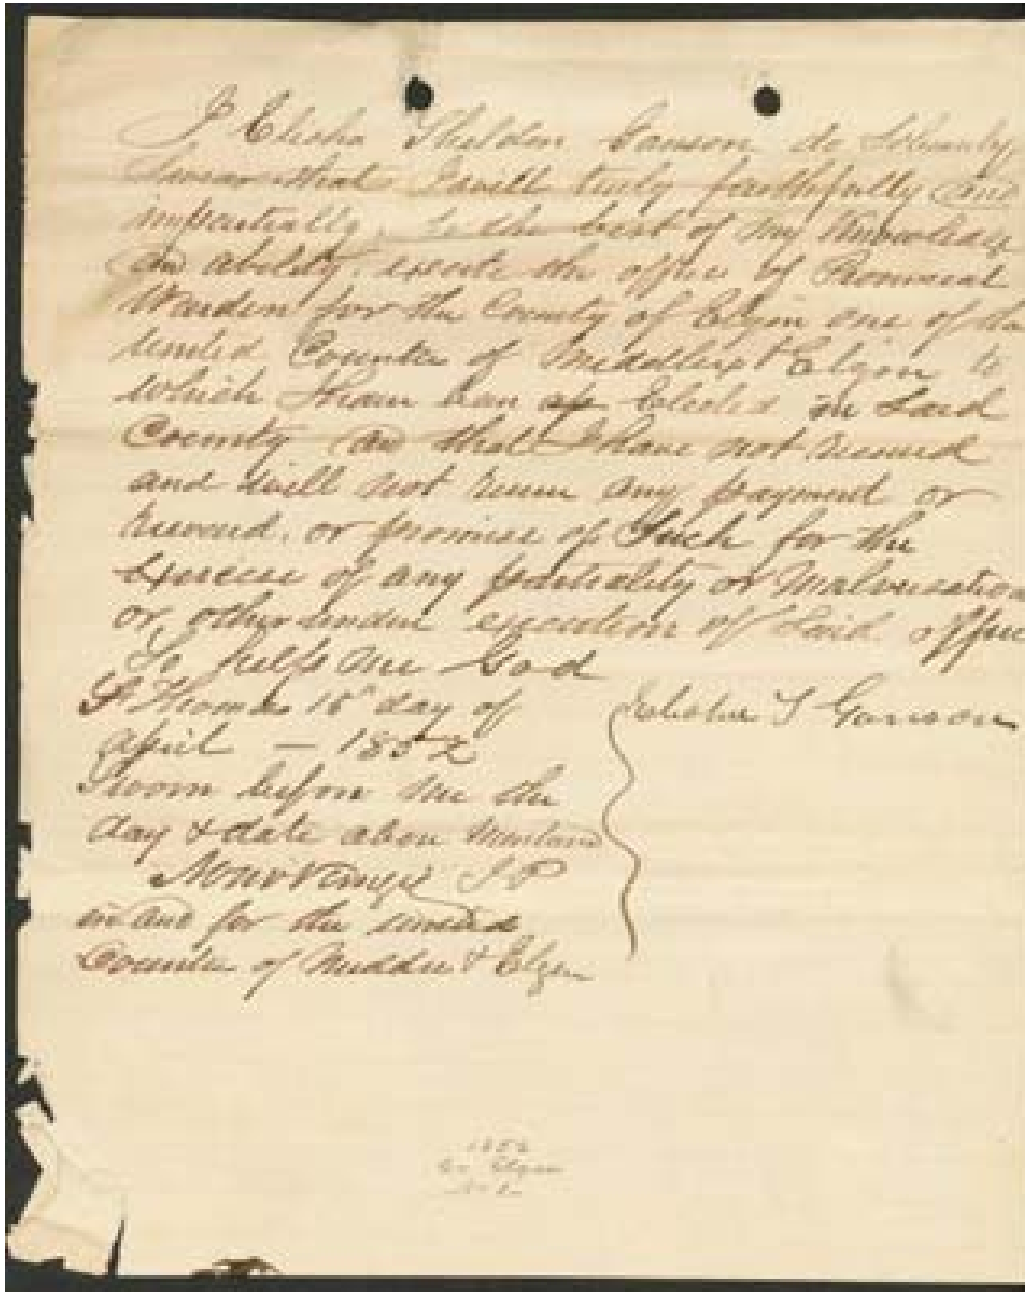 I Elisha Shelden Ganson do Solemnly
Swear that I will truly faithfully and
impartially, to the best of my Knowledge
and ability, execute the office of Provincial
Warden for the County of Elgin one of the
United Counties of Middlesex & Elgin to
which I have been Elected in Said
County and that I have not received
and will not receive any payment or
reward, or promise of Such for the
Exercise of any partiality or Malversation
or other undue execution of Said office
So help me God
St Thomas 15th day of
April — 1852
Elisha S Ganson
Sworn before me the
day & date above Mentioned
J P
in and for the united
Counties of Middx & Elgin
1852
Co Elgin